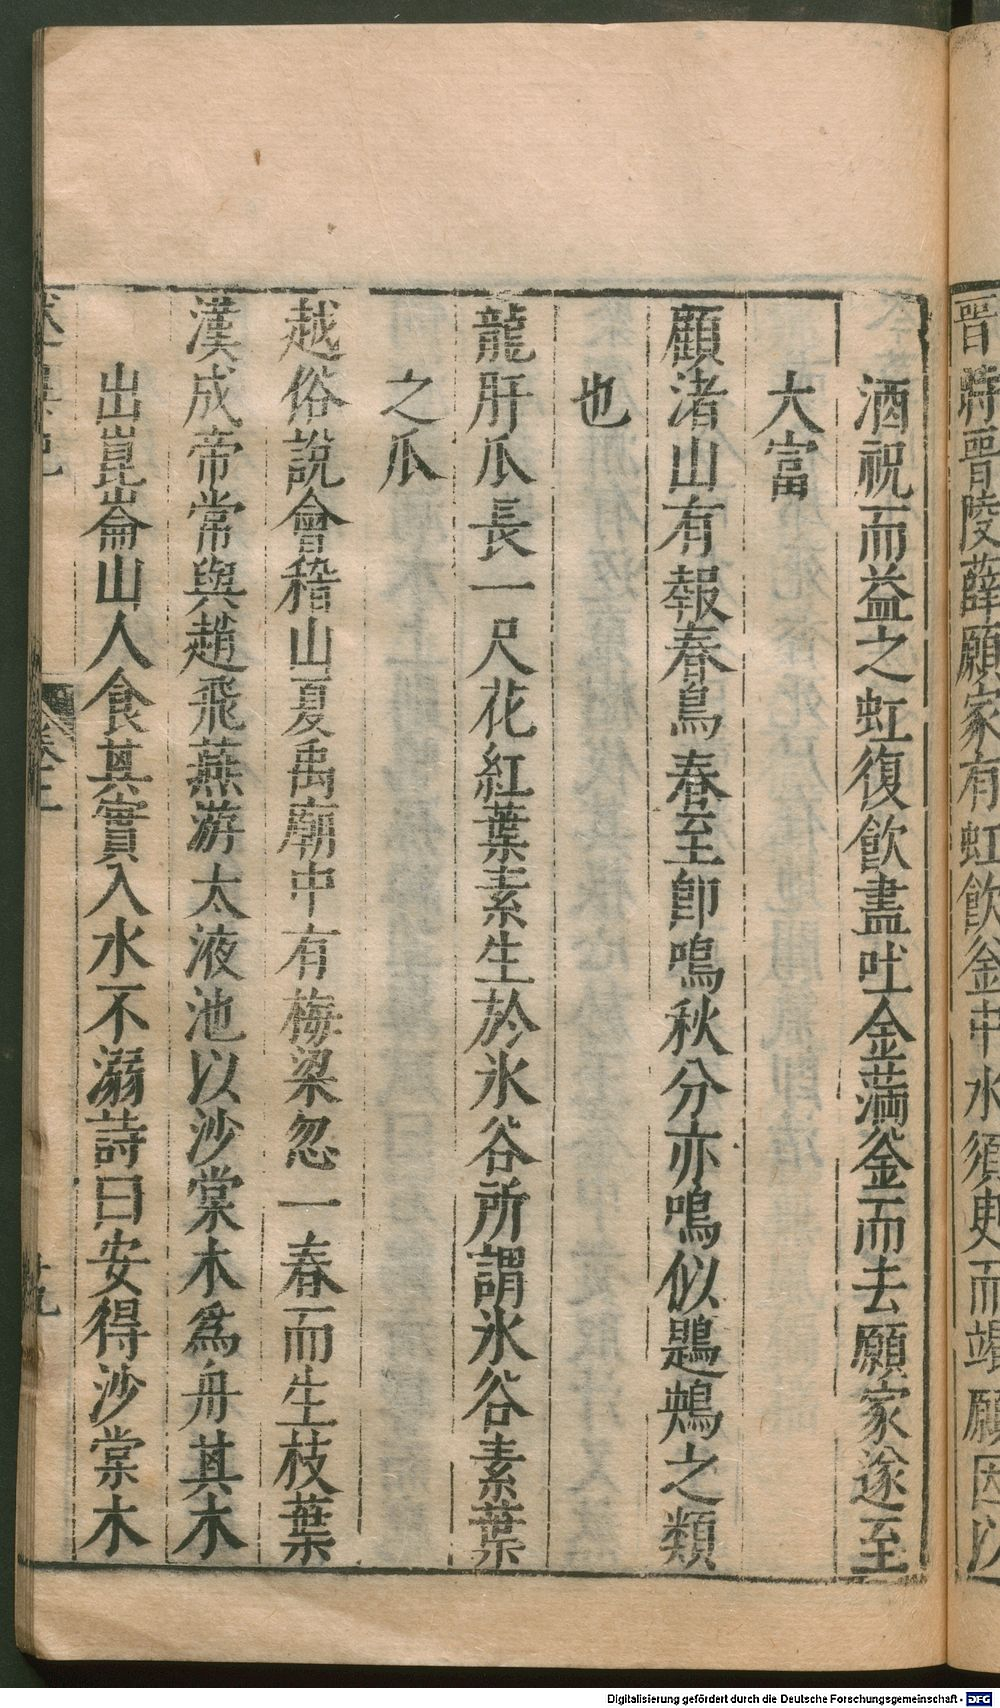 晉時晉陵薛願家有虹飲釜中水須臾而竭願因以
酒祝而益之虹復飲盡吐金滿釜而去願家遂至
大富
顧渚山有報春鳥春至卽鳴秋分亦鳴似鶗鴂之類
也
龍肝瓜長一尺花紅葉素生於氷谷所謂氷谷素葉
之瓜
越俗說會稽山夏禹廟中有梅梁忽一春而生枝葉
漢成帝常與趙飛燕游太液池以沙棠木爲舟其木
出崑崙山人食其實入水不溺詩曰安得沙棠木
述異記
卷上
十九
Digitalisierung gefördert durch die Deutsche Forschungsgemeinschaft - DFG